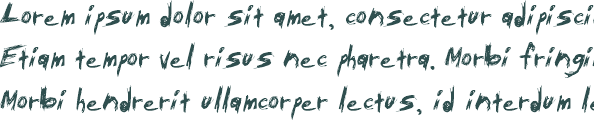 Lorem ipsum dolor sit amet, consectetur adipisci
Etiam tempor vel risus nec pharetra. Morbi fringi
Morbi hendrerit ullamcorper lectus, id interdum le